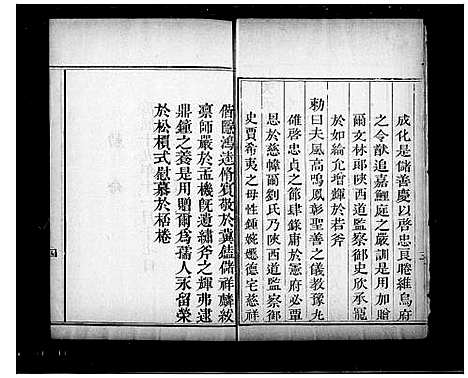 成化是儲善慶以啓忠貞睠維烏府
之令猷追嘉鯉庭之嚴訓是用加贈
爾文林郎陝西道監察御史欣承寵
於如綸允增輝於若斧
勅曰夫風高鳴鳳彰聖善之儀教豫九
碓啓忠貞之節肆錄庸於憲府必覃
恩於慈幃爾劉氏乃陝西道監察御
史賈希夷之母性鍾婉嫕德宅慈祥
偕臨鴻逵脩賓敬於冀饁儲祥麟紱
凛師嚴於孟機旣遺繡斧之輝弗逮
鼎鐘之養是用贈爾爲孺人永留榮
於松檟式慰慕於桮棬
三
四